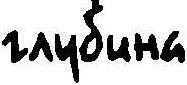 глубина